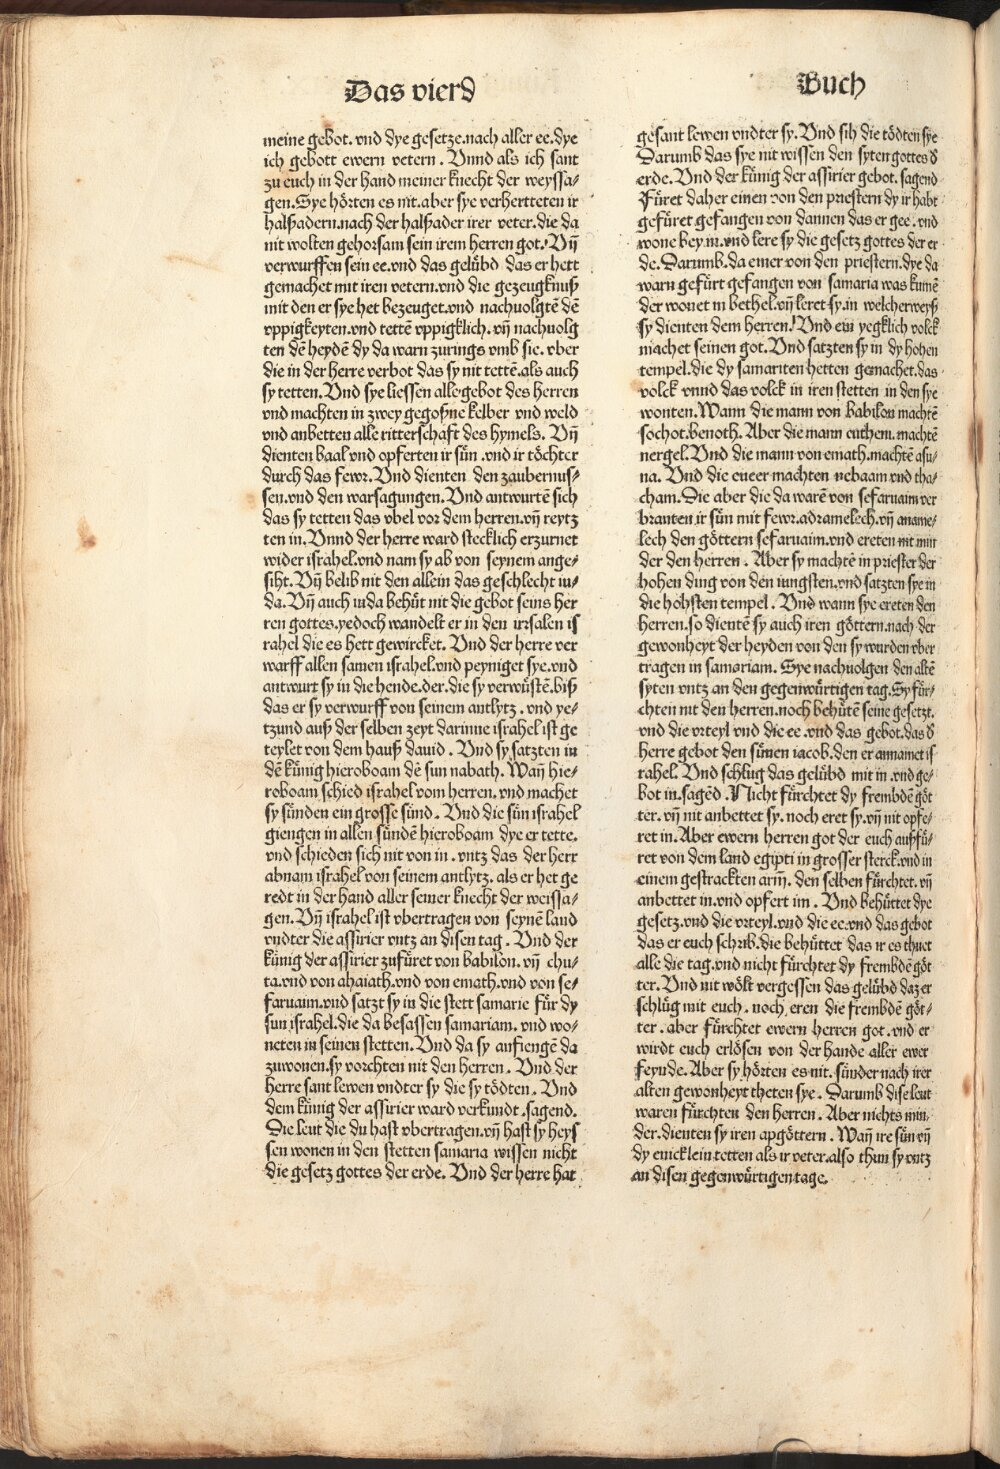 Das vierd
Buch
meine gebot. vnd dye gesetze. nach aller ee. dye
ich gebott ewern vetern. Vnnd als ich sant
zu euch in der hand meiner knecht der weyssa-
gen. Sye hörten es nit. aber sye verhertteten ir
halßadern. nach der halßader irer veter. die da
nit wolten gehorsam sein irem herren got. Vñ
verwurffen sein ee. vnd das gelübd das er hett
gemachet mit iren vetern. vnd die gezeugknuß
mit den er sye het bezeuget. vnd nachuolgtẽ dẽ
vppigkeyten. vnd tettẽ vppigklich. vñ nachuolg
ten dẽ heydẽ dy da warn zurings vmb sie. vber
die in der herre verbot das sy nit tettẽ. als auch
sy tetten. Vnd sye liessen alle gebot des herren
vnd machten in zwey gegoßne kelber vnd weld
vnd anbetten alle ritterschaft des hymels. Vñ
dienten baal vnd opferten ir sün. vnd ir töchter
durch das fewr. Vnd dienten den zaubernus-
sen. vnd den warsagungen. Vnd antwurtẽ sich
das sy tetten das vbel vor dem herren. vñ reytz
ten in. Vnnd der herre ward stecklich erzurnet
wider israhel. vnd nam sy ab von seynem ange-
siht. Vñ belib nit den allein das geschlecht iu-
da. Vñ auch iuda behüt nit die gebot seins her
ren gottes. yedoch wandelt er in den irsalen is
rahel die es hett gewircket. Vnd der herre ver
warff allen samen israhel. vnd peyniget sye. vnd
antwurt sy in die hende. der. die sy verwüstẽ. biß
das er sy verwurff von seinem antlytz. vnd ye-
tzund auß der selben zeyt darinne israhel ist ge
teylet von dem hauß dauid. Vnd sy satzten in
dẽ künig hieroboam dẽ sun nabath. Wañ hie-
roboam schied israhel vom herren. vnd machet
sy sünden ein grosse sünd. Vnd die sün israhel
giengen in allen sündẽ hieroboam dye er tette.
vnd schieden sich nit von in. vntz das der herr
abnam israhel von seinem antlytz. als er het ge
redt in der hand aller seiner knecht der weissa-
gen. Vñ israhel ist vbertragen von seynẽ land
vndter die assirier vntz an disen tag. Vnd der
künig der assirier zufüret von babilon. vñ chu-
ta. vnd von ahaiath. vnd von emath. vnd von se-
faruaim. vnd satzt sy in die stett samarie für dy
sun israhel. die da besassen samariam. vnd wo-
neten in seinen stetten. Vnd da sy anfiengẽ da
zuwonen. sy vorchten nit den herren. Vnd der
herre sant lewen vndter sy die sy tödten. Vnd
dem künig der assirier ward verkundt. sagend.
Die leut die du hast vbertragen. vñ hast sy heys
sen wonen in den stetten samaria wissen nicht
die gesetz gottes der erde. Vnd der herre hat
gesant lewen vndter sy. Vnd sih die tödten sye
Darumb das sye nit wissen den syten gottes d̕
erde. Vnd der künig der assirier gebot. sagend
Füret daher einen von den priestern dy ir habt
gefüret gefangen von dannen das er gee. vnd
wone bey in. vnd lere sy die gesetz gottes der er
de. Darumb. da einer von den priestern. dye da
warn gefürt gefangen von samaria was kumẽ
der wonet in bethel. vñ leret sy. in welcherweyß
sy dienten dem herren. Vnd ein yegklich volck
machet seinen got. Vnd satzten sy in dy hohen
tempel. die dy samariten hetten gemachet. das
volck vnnd das volck in iren stetten in den sye
wonten. Wann die mann von babilon machtẽ
sochot. benoth. Aber die mann cuthem. machtẽ
nergel. Vnd die mann von emath. machtẽ asu-
na. Vnd die eueer machten nebaam vnd tha-
cham. Die aber die da warẽ von sefaruaim ver
branten ir sün mit fewr. adramelech. vñ aname-
lech den göttern sefaruaim. vnd ereten nit min
der den herren. Aber sy machtẽ in priester der
hohen ding von den iungsten. vnd satzten sye in
die höhsten tempel. Vnd wann sye ereten den
herren. so dientẽ sy auch iren göttern. nach der
gewonheyt der heyden von den sy wurden vber
tragen in samariam. Sye nachuolgen den altẽ
syten vntz an den gegenwürtigen tag. Sy für-
chten nit den herren. noch behütẽ seine gesetzt.
vnd die vrteyl vnd die ee. vnd das gebot. das d̕
herre gebot den sünen iacob. den er annamet is
rahel. Vnd schlug das gelübd mit in. vnd ge-
bot in. sagẽd. Nicht fürchtet dy frembdẽ göt
ter. vñ nit anbettet sy. noch eret sy. vñ nit opfe-
ret in. Aber ewern herren got der euch außfü-
ret von dem land egipti in grosser sterck. vnd in
einem gestrackten arm. den selben fürchtet. vñ
anbettet in. vnd opfert im. Vnd behüttet dye
gesetz. vnd die vrteyl. vnd die ee. vnd das gebot
das er euch schrib. die behüttet das ir es thuet
alle die tag. vnd nicht fürchtet dy frembdẽ göt
ter. Vnd nit wölt vergessen das gelübd daz er
schlüg mit euch. noch eren die frembdẽ göt-
ter. aber fürchtet ewern herren got. vnd er
wirdt euch erlösen von der hande aller ewer
feynde. Aber sy hörten es nit. sünder nach irer
alten gewonheyt theten sye. Darumb dise leut
waren fürchten den herren. Aber nichts min-
der. dienten sy iren apgöttern. Wañ ire sün vñ
dy enicklein tetten als ir veter. also thun sy vntz
an disen gegenwürtigen tage.